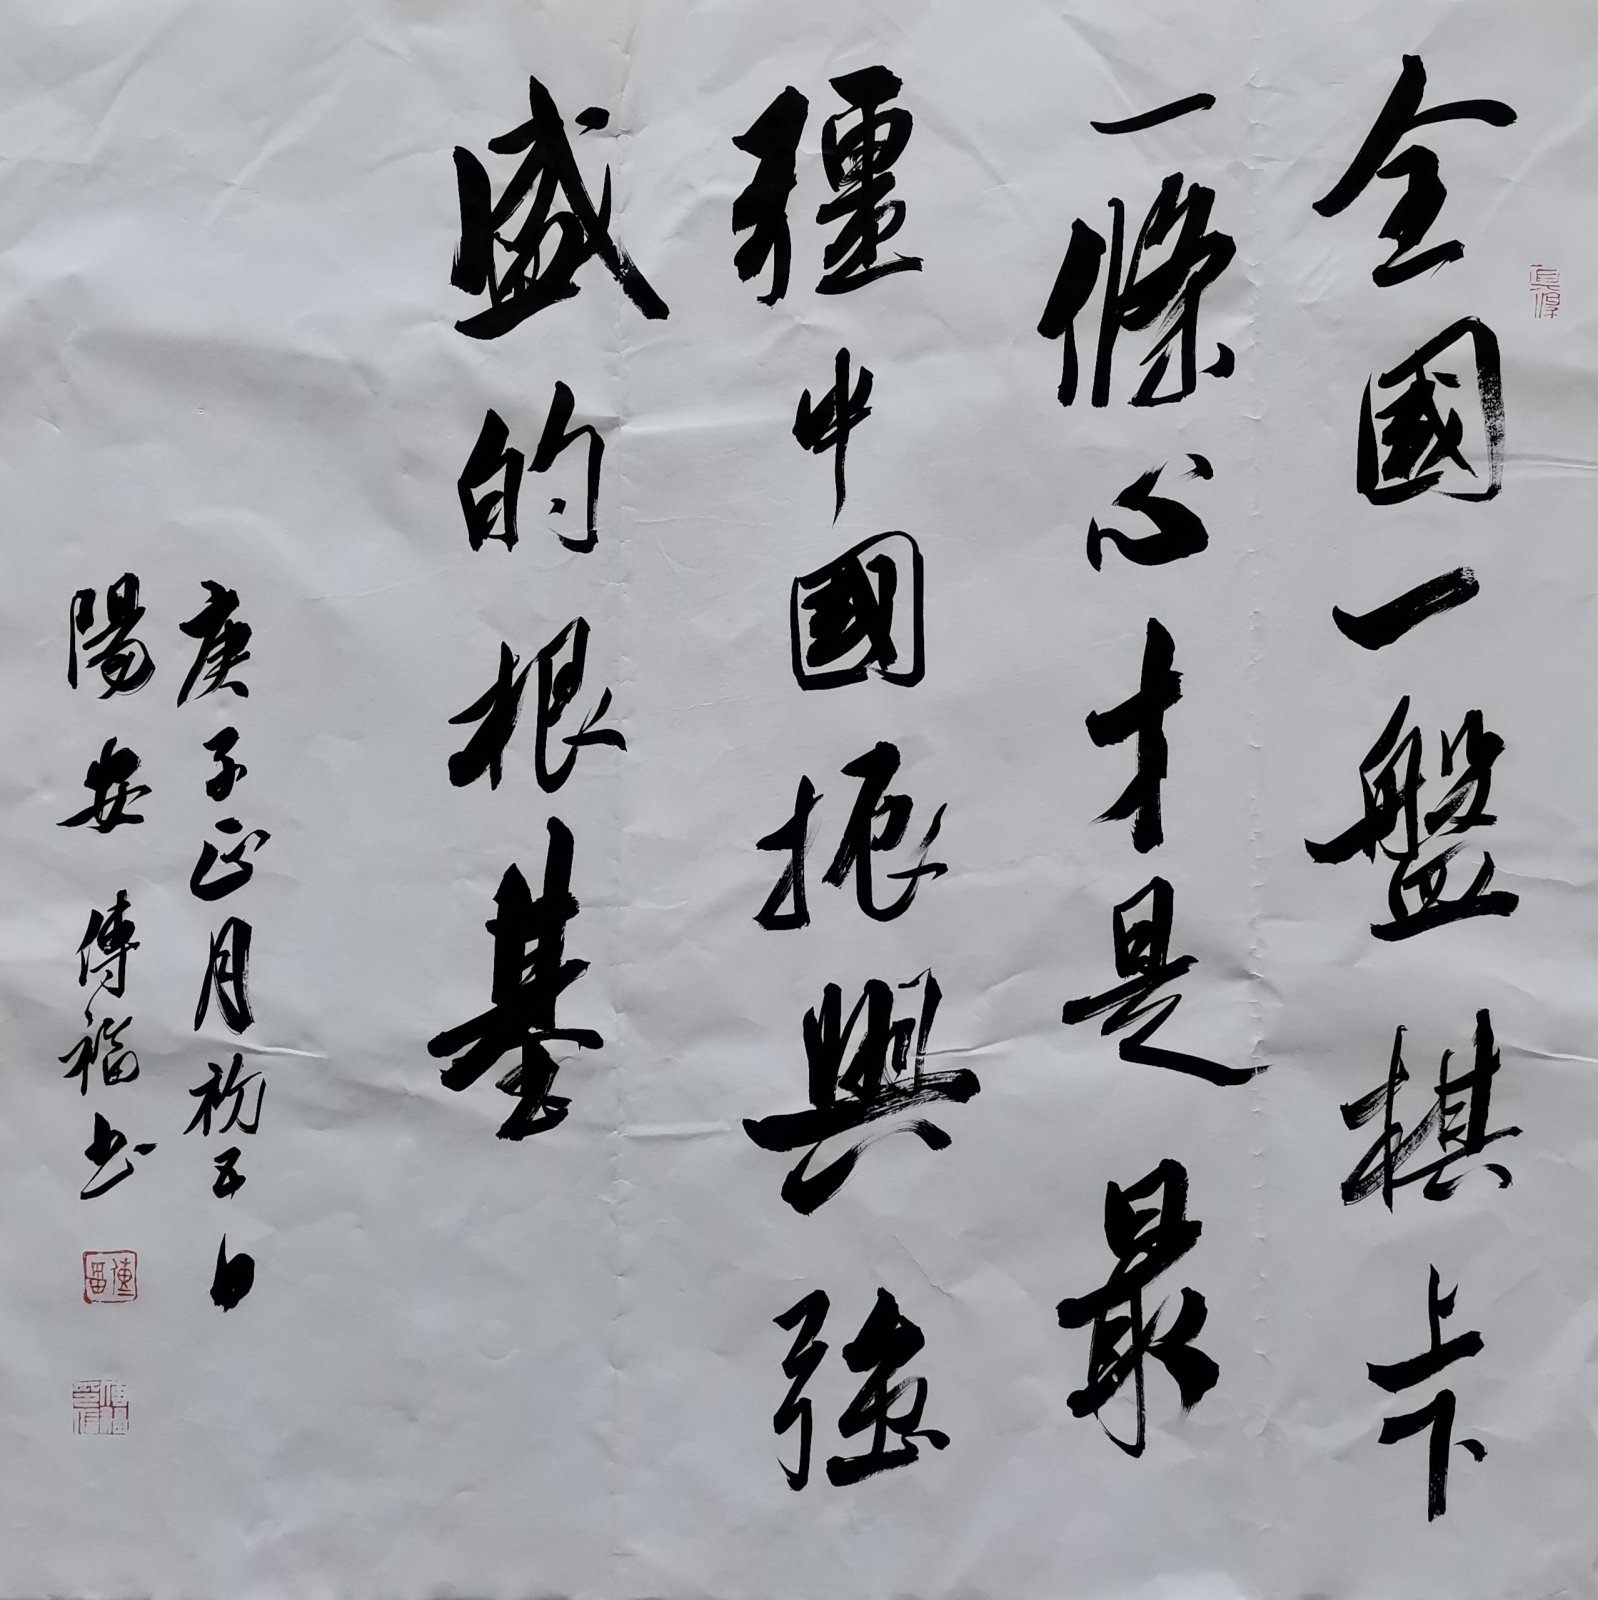 全國一盤棋上下
一條心才是最
疆中國振興強
盛的根基
庚子正月初五日
陽安傅福書